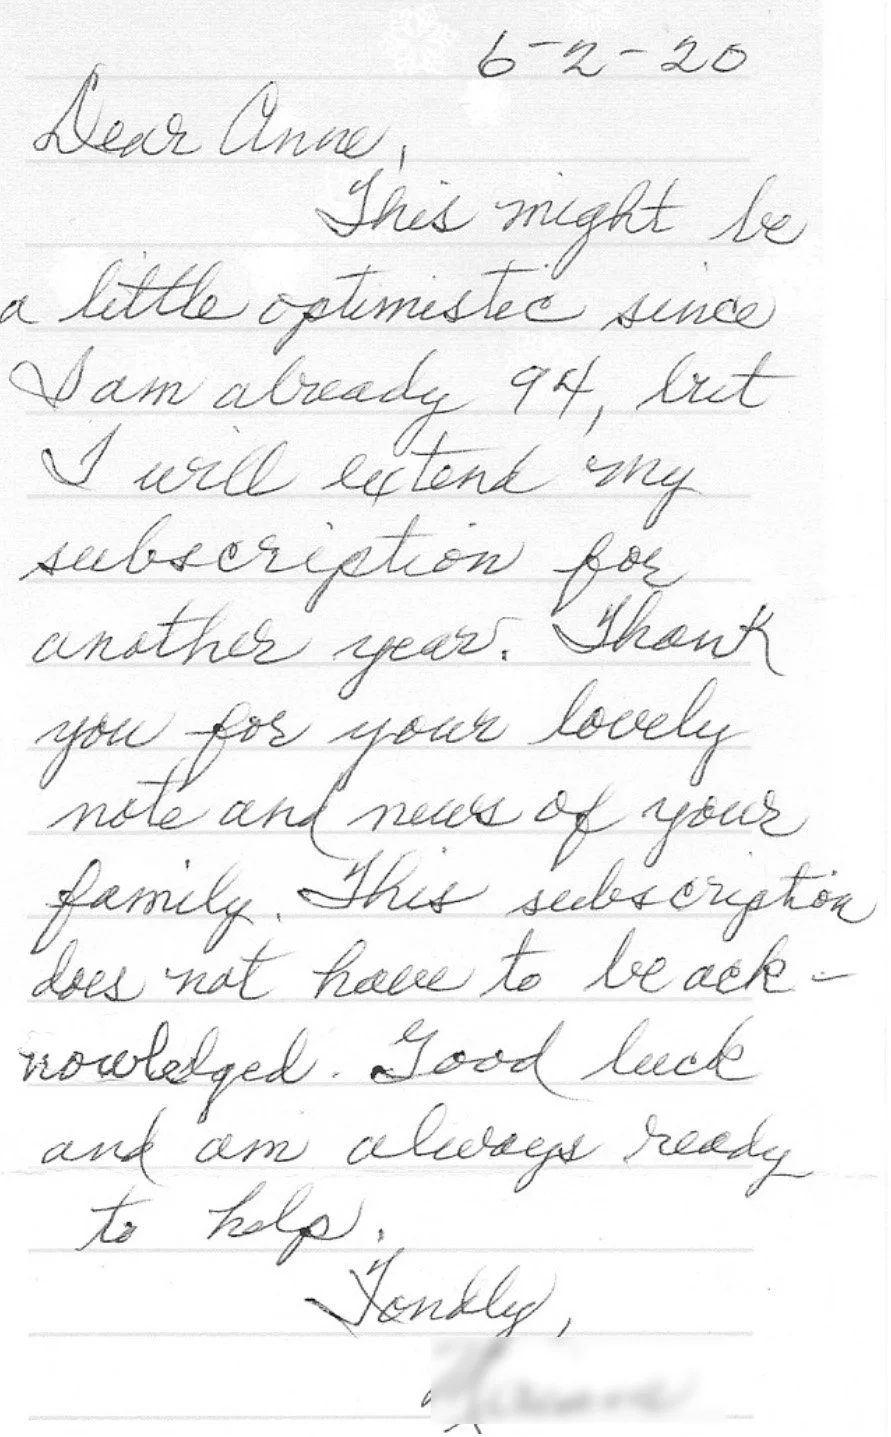 6-2-20
Dear Anne,
This might be
a little optimistic since
I am already 94, but
I will extend my
subscription for
another year. Thank
you for your lovely
note and news of your
family. This subscription
does not have to be ack-
nowledged. Good luck
and am always ready
to help.
Fondly,